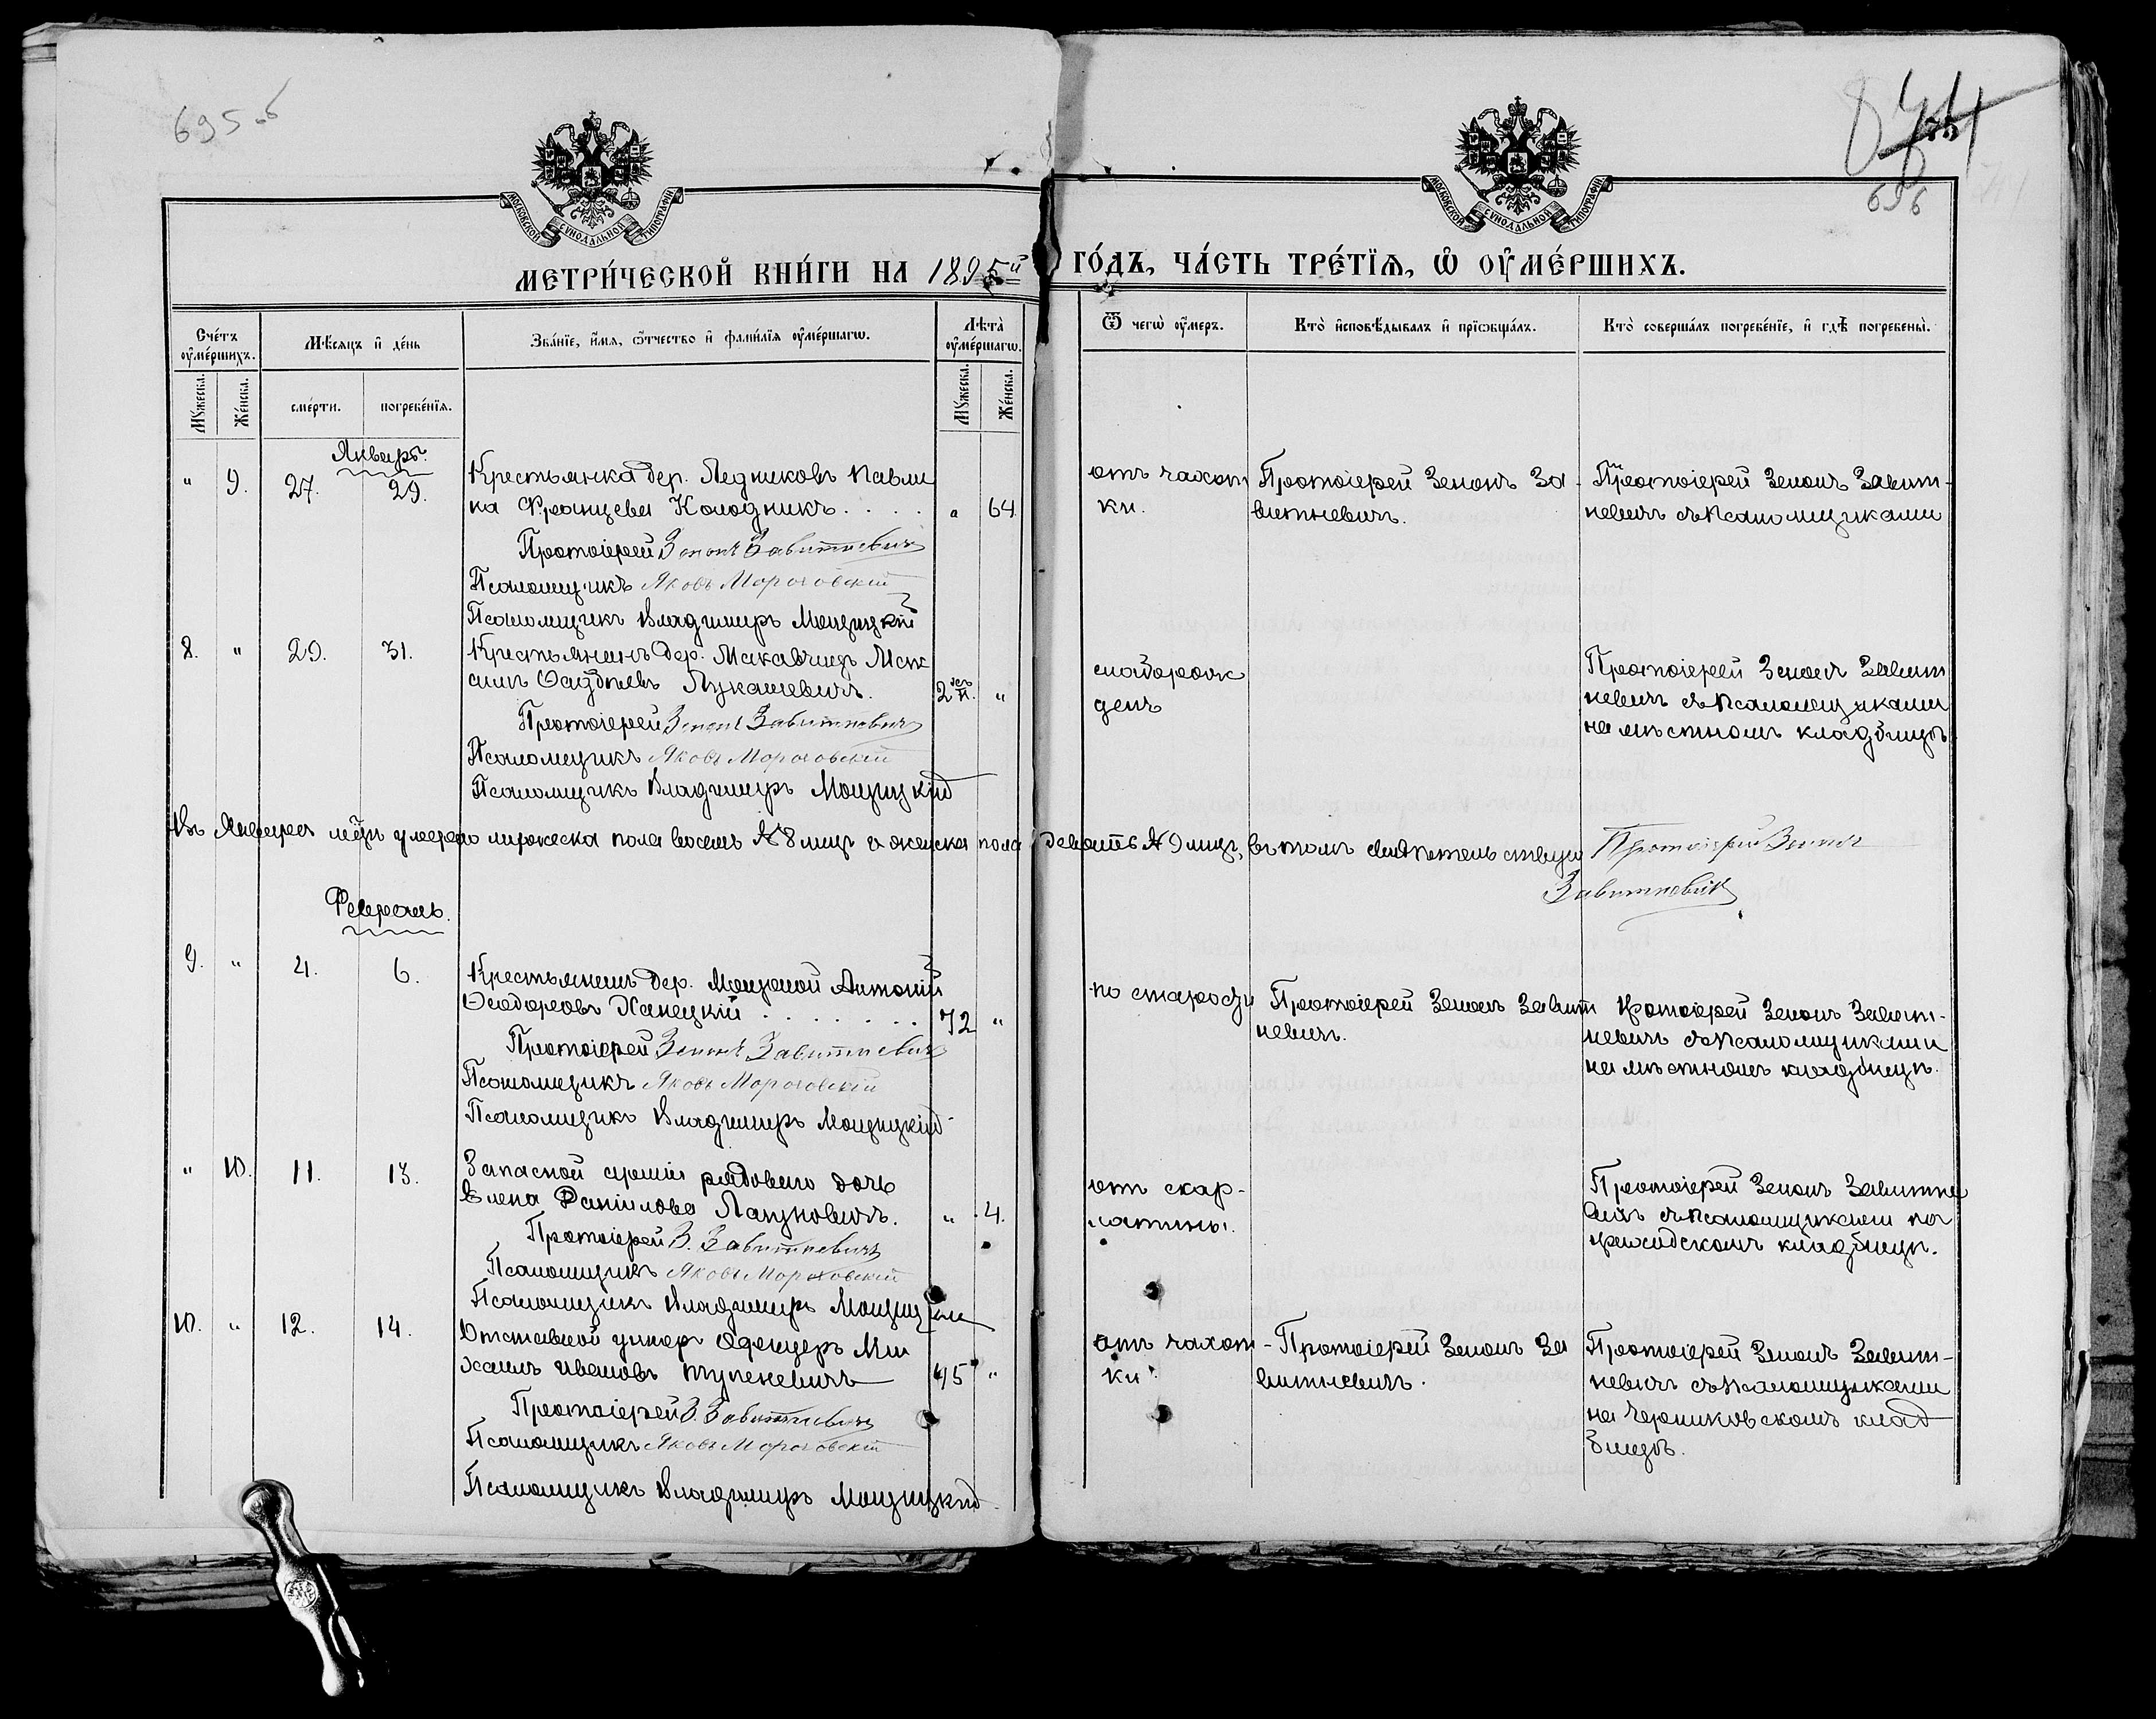 695 об
696
МОСКОВСКОЙ СѴНОДАЛЬНОЙ ТИПОГРАФІИ.
МОСКОВСКОЙ СѴНОДАЛЬНОЙ ТИПОГРАФІИ.
МЕТРИ́ЧЕСКОЙ КНИ́ГИ НА 1895й ГО́ДЪ, ЧА́СТЬ ТРЕ́ТЇѦ, Ѽ ОУ҆МЕ́РШИХЪ.
Сче́тъ оу҆ме́ршихъ.
Мѣ́сѧцъ и҆ де́нь
Зва́нїе, и҆́мѧ, ѻ҆́тчество и҆ фами́лїѧ оу҆ме́ршагѡ.
Лѣта̀ оу҆ме́ршагѡ.
Ѿ чегѡ̀ оу҆́меръ.
Кто̀ и҆сповѣ́дывалъ и҆ прїѡбща́лъ.
Кто̀ соверша́лъ погребе́нїе, и҆ гдѣ̀ погребены̀.
Мꙋ́жеска.
Же́нска.
сме́рти.
погребе́нїѧ.
Мꙋ́жеска.
Же́нска.
Январь.
" 9. 27. 29. Крестьянка дер. Ледниковъ Павли
на Францева Колодникъ . . . . " 64.
Протоіерей Зенонъ Завитневичъ
Псаломщикъ Яковъ Мороховскій
Псаломщикъ Владимиръ Мощицкій
отъ чахот
ки.
Протоіерей Зенонъ За-
витневичъ.
Протоіерей Зенонъ Завит-
невичъ съ Псаломщиками
8. " 29. 31. Крестьянинъ дер. Макавчицъ Мак
симъ Лукашевичъ. 2 "
Протоіерей Зенонъ Завитневичъ
Псаломщикъ Яковъ Мороховскій
Псаломщикъ Владимиръ Мощицкій
слаборож
денъ
Протоіерей Зенонъ Завит
невичъ съ Псаломщиками
на мѣстномъ кладбищѣ
Въ Январѣ м-цѣ умерло мужеска пола восемь № 8 лицъ а женска пола девять № 9 лицъ, въ томъ свидѣтельствую Протоіерей Зенонъ
Завитневичъ
Февраль.
9. " 4. 6. Крестьянинъ дер. Антоній
Ѳеодоровъ Ханецкій . . . . . . . 72 "
Протоіерей Зенонъ Завитневичъ
Псаломщикъ Яковъ Мороховскій
Псаломщикъ Владимиръ Мощицкій
по старости
Протоіерей Зенонъ Завит
невичъ.
Протоіерей Зенонъ Завит-
невичъ съ Псаломщиками
на мѣстномъ кладбищѣ.
" 10. 11. 13. Запасной арміи рядоваго дочь
Елена Даніилова Лагуновичъ. " 4.
Протоіерей З. Завитневичъ
Псаломщикъ Яковъ Мороховскій
Псаломщикъ Владимиръ Мощицкій
отъ скар-
латины.
Протоіерей Зенонъ Завитне
вичъ съ Псаломщиками на
приходскомъ кладбищѣ.
10. " 12. 14. Отставной унтеръ Офицеръ Ми
хаилъ Ивановъ Тупеневичъ 45 "
Протоіерей З. Завитневичъ
Псаломщикъ Яковъ Мороховскій
Псаломщикъ Владимиръ Мощицкій
отъ чахот-
ки.
Протоіерей Зенонъ За
витневичъ.
Протоіерей Зенонъ Завит-
невичъ съ Псаломщиками
на Черниковскомъ клад
бищѣ.